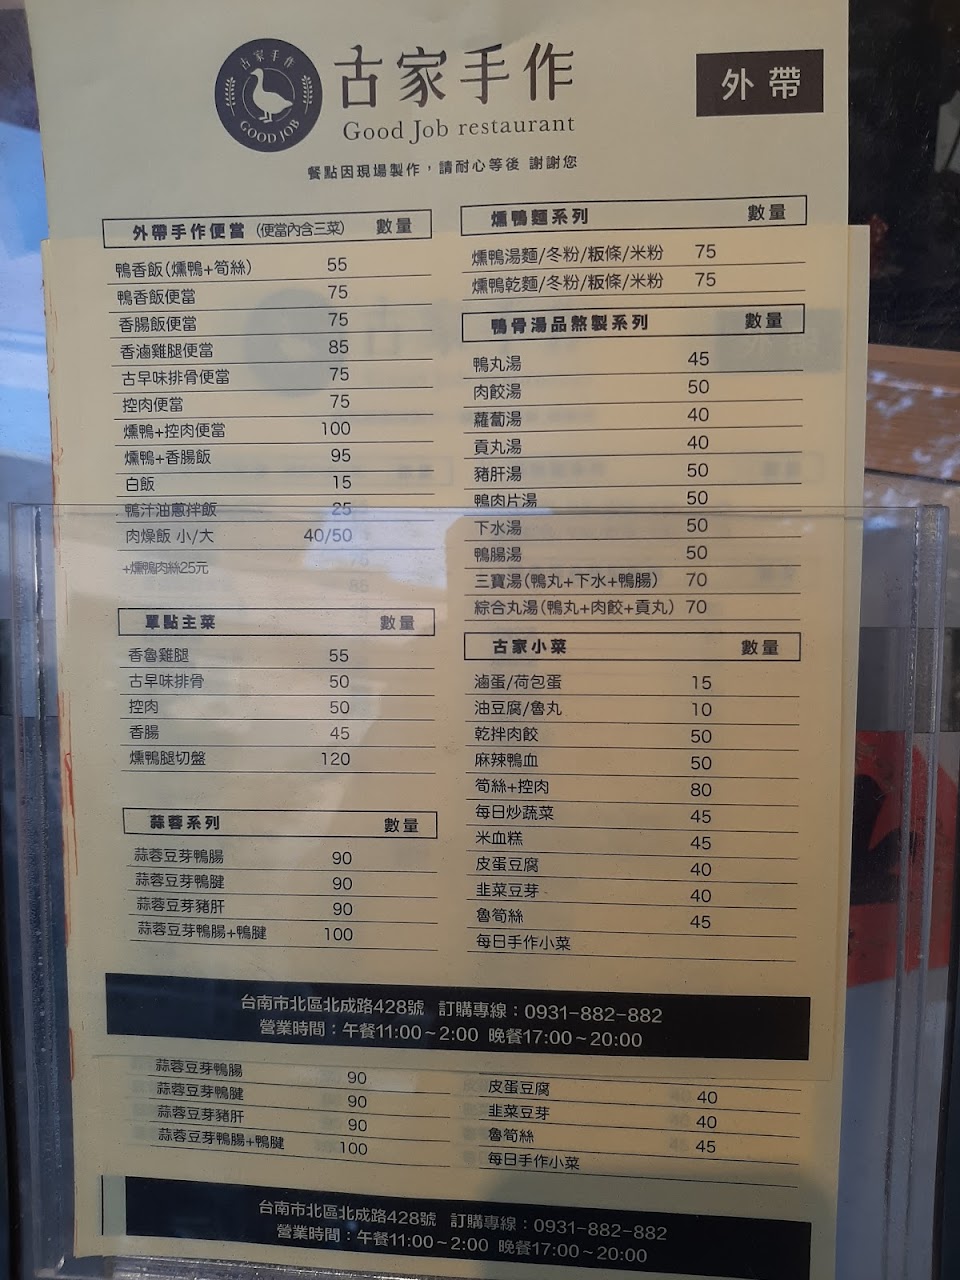 古家手作
GOOD JOB
古家手作
Good Job restaurant
外帶
餐點因現場製作，請耐心等後 謝謝您
外帶手作便當（便當內含三菜） 數量
鴨香飯(燻鴨+筍絲) 55
鴨香飯便當 75
香腸飯便當 75
香滷雞腿便當 85
古早味排骨便當 75
控肉便當 75
燻鴨+控肉便當 100
燻鴨+香腸飯 95
白飯 15
鴨汁油蔥拌飯 25
肉燥飯 小/大 40/50
+燻鴨肉絲25元
單點主菜 數量
香魯雞腿 55
古早味排骨 50
控肉 50
香腸 45
燻鴨腿切盤 120
蒜蓉系列 數量
蒜蓉豆芽鴨腸 90
蒜蓉豆芽鴨腱 90
蒜蓉豆芽豬肝 90
蒜蓉豆芽鴨腸+鴨腱 100
燻鴨麵系列 數量
燻鴨湯麵/冬粉/粄條/米粉 75
燻鴨乾麵/冬粉/粄條/米粉 75
鴨骨湯品熬製系列 數量
鴨丸湯 45
肉餃湯 50
蘿蔔湯 40
貢丸湯 40
豬肝湯 50
鴨肉片湯 50
下水湯 50
鴨腸湯 50
三寶湯(鴨丸+下水+鴨腸) 70
綜合丸湯(鴨丸+肉餃+貢丸) 70
古家小菜 數量
滷蛋/荷包蛋 15
油豆腐/魯丸 10
乾拌肉餃 50
麻辣鴨血 50
筍絲+控肉 80
每日炒蔬菜 45
米血糕 45
皮蛋豆腐 40
韭菜豆芽 40
魯筍絲 45
每日手作小菜
台南市北區北成路428號 訂購專線：0931-882-882
營業時間：午餐11:00～2:00 晚餐17:00～20:00
蒜蓉豆芽鴨腸 90
蒜蓉豆芽鴨腱 90
蒜蓉豆芽豬肝 90
蒜蓉豆芽鴨腸+鴨腱 100
皮蛋豆腐 40
韭菜豆芽 40
魯筍絲 45
每日手作小菜
台南市北區北成路428號 訂購專線：0931-882-882
營業時間：午餐11:00～2:00 晚餐17:00～20:00